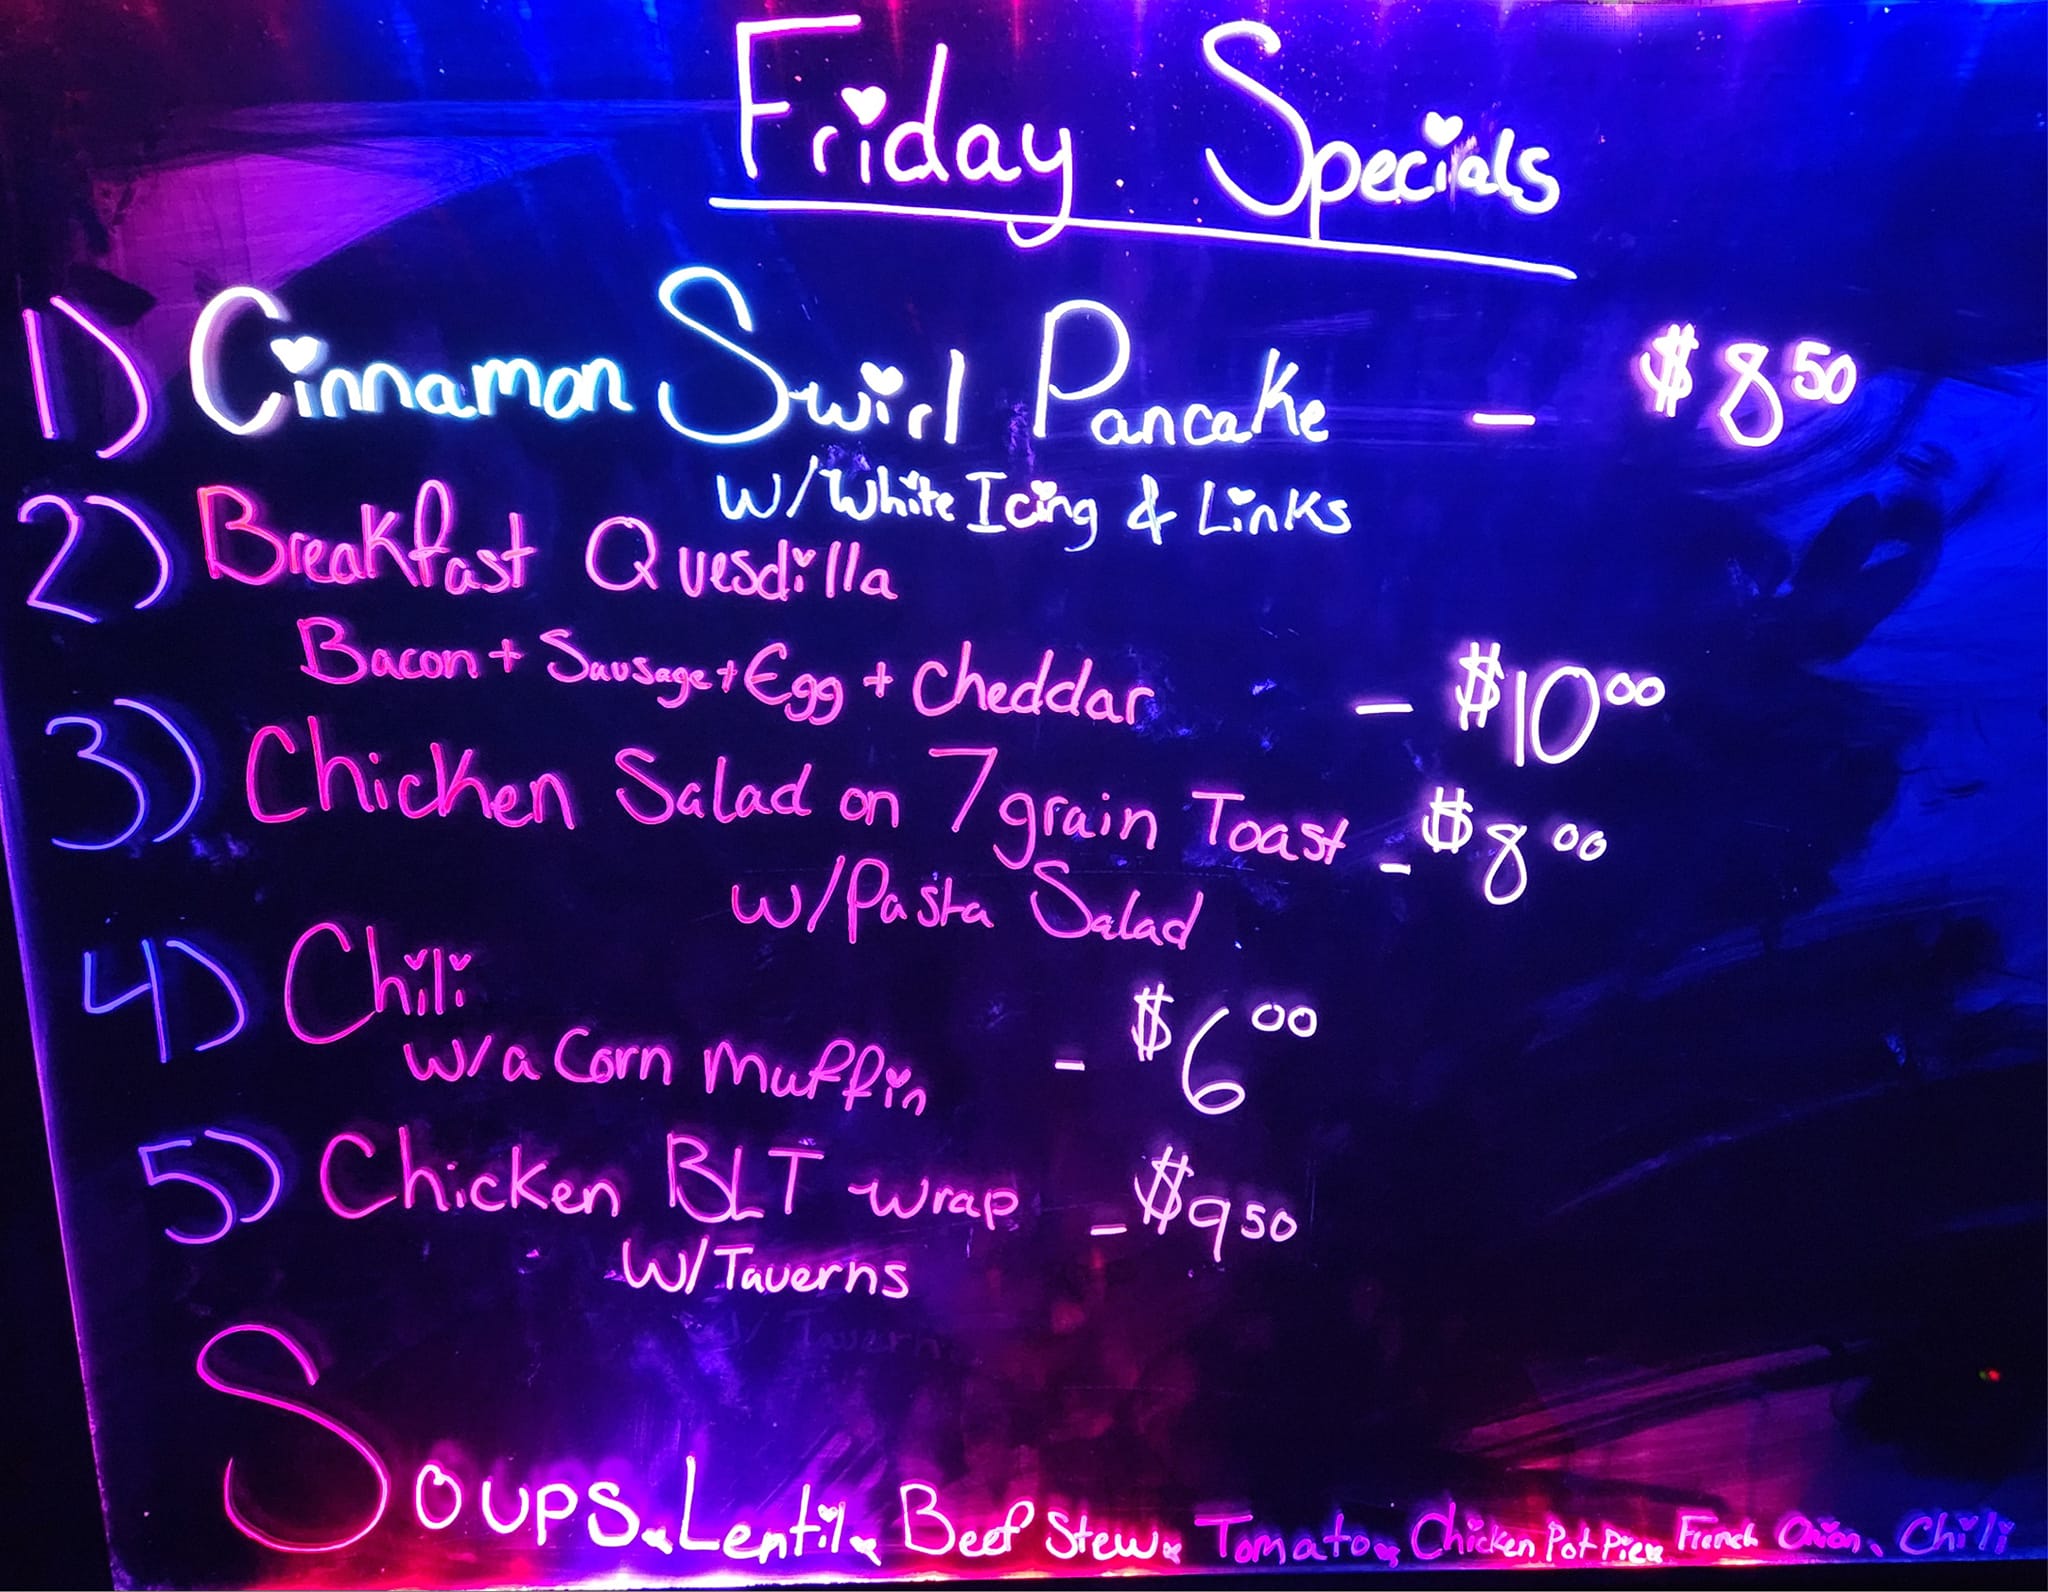 Friday Specials
1) Cinnamon Swirl Pancake - $8 50
w/White Icing & Links
2) Breakfast Quesdilla
Bacon + Sausage + Egg + Cheddar - $10 00
3) Chicken Salad on 7 grain Toast - $8 00
w/Pasta Salad
4) Chili
w/a Corn Muffin - $6 00
5) Chicken BLT wrap - $9 50
w/Taverns
Soups Lentil Beef Stew Tomato Chicken Pot Pie French Onion Chili